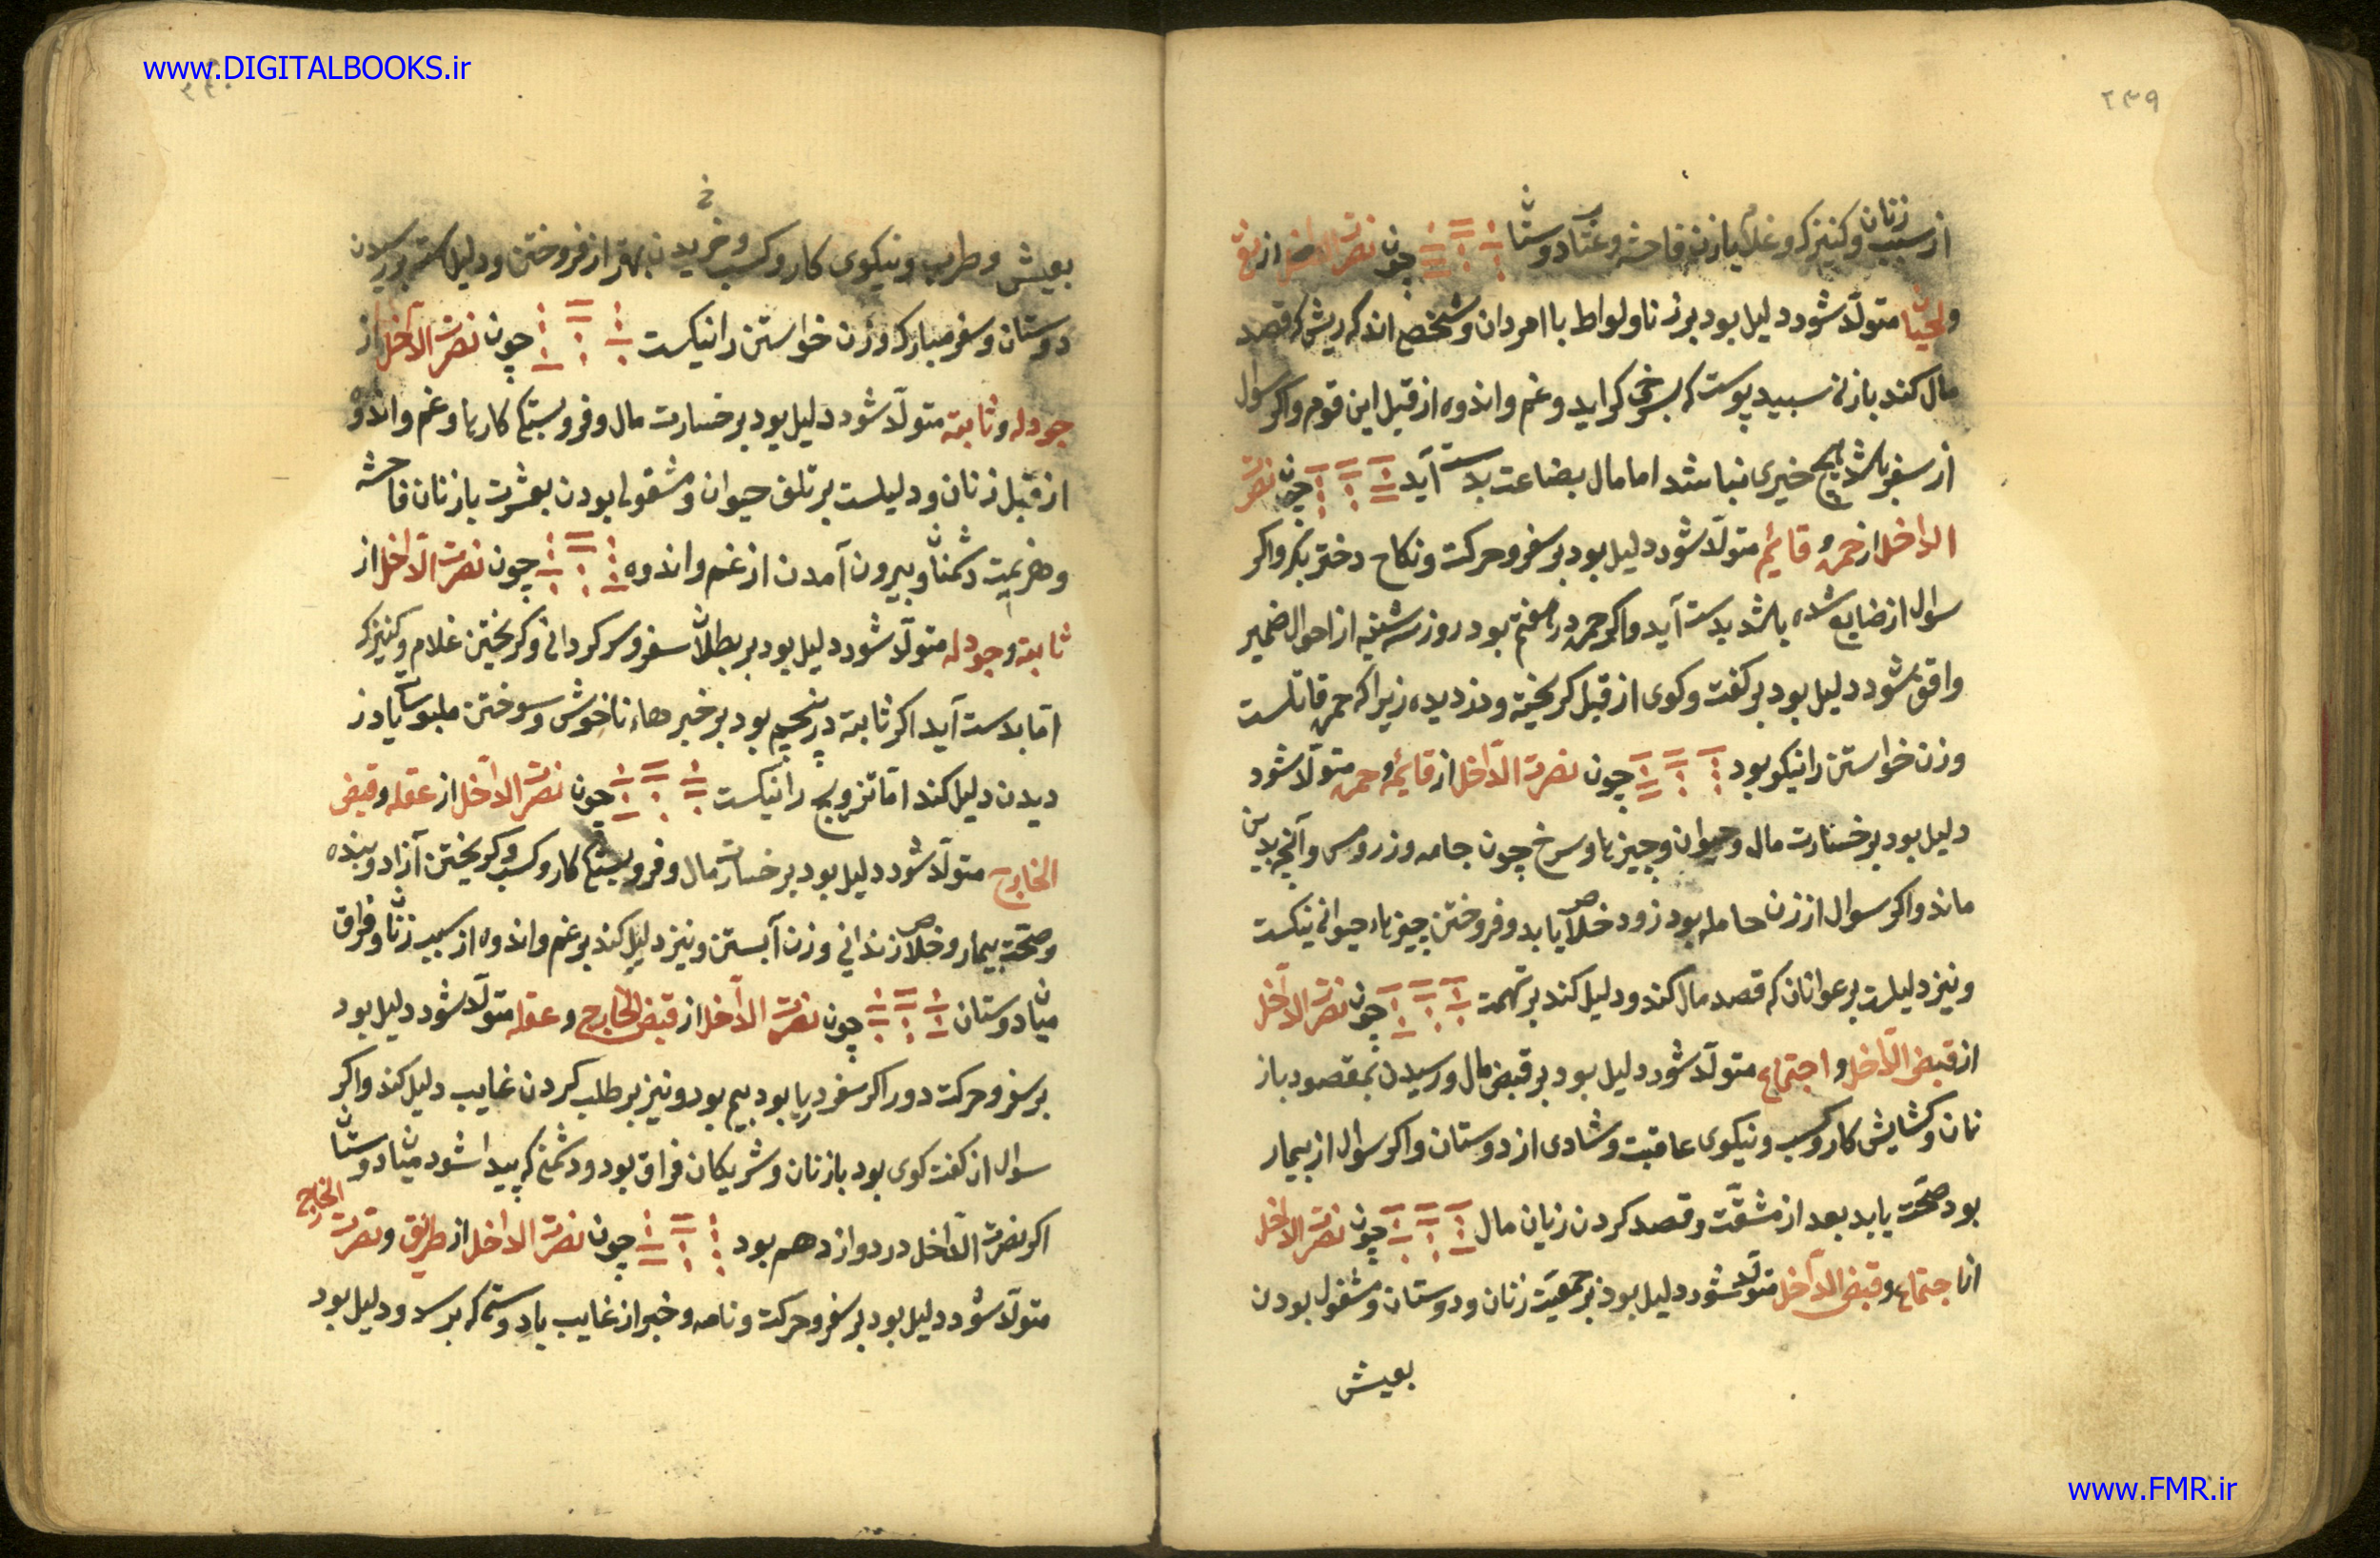 www.DIGITALBOOKS.ir
۲۳۹
از سبب زنان و کنیزک و غلام یا زن فاحشه و عتاب دوستان چون نصرت الداخل از نقی
و لحیان متولّد شود دلیل بود بر زنا و لواط با امردان و شخص اندک ریش که قصد
مال کند با زنی سبید پوست که بسرخی کراید و غم و اندوه از قبل این قوم و اکر سوال
از سفر باشد هیچ خیری نباشد اما مال بضاعت بدست آید چون نصرت
الداخل از حمره و قائم متولّد شود دلیل بود بر سفر و حرکت و نکاح دختر بکر و اکر
سوال از ضایع شده باشد بدست آید و اکر حمره در هفتم بود روز سه شنبه از احوال ضمیر
واقف شود دلیل بود بر کفت و کوی از قبل کریخته و دزدیده زیرا که حمره قاتلست
و زن خواستن را نیکو بود چون نصرت الداخل از قائم و حمره متولّد شود
دلیل بود بر خسارت مال و حیوان و چیزها و سرخ چون جامه و زر و مس و آنچه بدین
ماند و اکر سوال از زن حامله بود زود خلاص یابد و فروختن چیزهاء حیوانی نیکست
و نیز دلیلست بر عوانان که قصد مال کند و دلیل کند بر تهمت چون نصرت الداخل
از قبض الداخل و اجتماع متولّد شود دلیل بود بر قبض مال و رسیدن بمقصود باز
نان و کشایش کار و کسب و نیکوی عاقبت و شادی از دوستان و اکر سوال از بیمار
بود صحّت یابد بعد از مشقّت و قصد کردن زیان مال چون نصرت الداخل
از اجتماع و قبض الداخل متولّد شود دلیل بود بر جمعیّت زنان و دوستان و مشغول بودن
بعیش
بعیش و طرب و نیکوی کار و کسب و خریدن بهتر از فروختن و دلیل رسیدن
دوستان و سفر مبارک و زن خواستن را نیکست چون نصرت الداخل از
جودله و ثابته متولّد شود دلیل بود بر خسارت مال و فروبستکی کارها و غم و اندوه
از قبل زنان و دلیلست بر تلف حیوان و مشغول بودن بعشرت با زنان فاحشه
و هزیمت دشمنان و بیرون آمدن از غم و اندوه چون نصرت الداخل از
ثابته و جودله متولّد شود دلیل بود بر بطلان سفر و سرکردانی و کریختن غلام و کنیزک
امّا بدست آید اکر ثابته در پنجم بود بر خبرهاء ناخوش و سوختن ملبوسات یا دزد
دیدن دلیل کند امّا تزویج را نیکست چون نصرت الداخل از عقله و قبض
الخارج متولّد شود دلیل بود بر خسارت مال و فروبستکی کار و کسب و کریختن آزاد و بنده
و صحّت بیمار و خلاص زندانی و زن آبستن و نیز دلیل کند بر غم و اندوه از سبب زنان و فراق
میان دوستان چون نصرت الداخل از قبض الخارج و عقله متولّد شود دلیل بود
بر سفر و حرکت دور اکر سفر دریا بود بیم بود و نیز بر طلب کردن غایب دلیل کند و اکر
سوال از کفت کوی بود با زنان و شریکان فراق بود و دشمنی که پیدا شود میان دوستان
اکر نصرت الداخل در دوازدهم بود چون نصرت الداخل از طریق و نصرت الخارج
متولّد شود دلیل بود بر سفر و حرکت و نامه و خبر از غایب یا دوستی که برسد و دلیل بود
www.FMR.ir